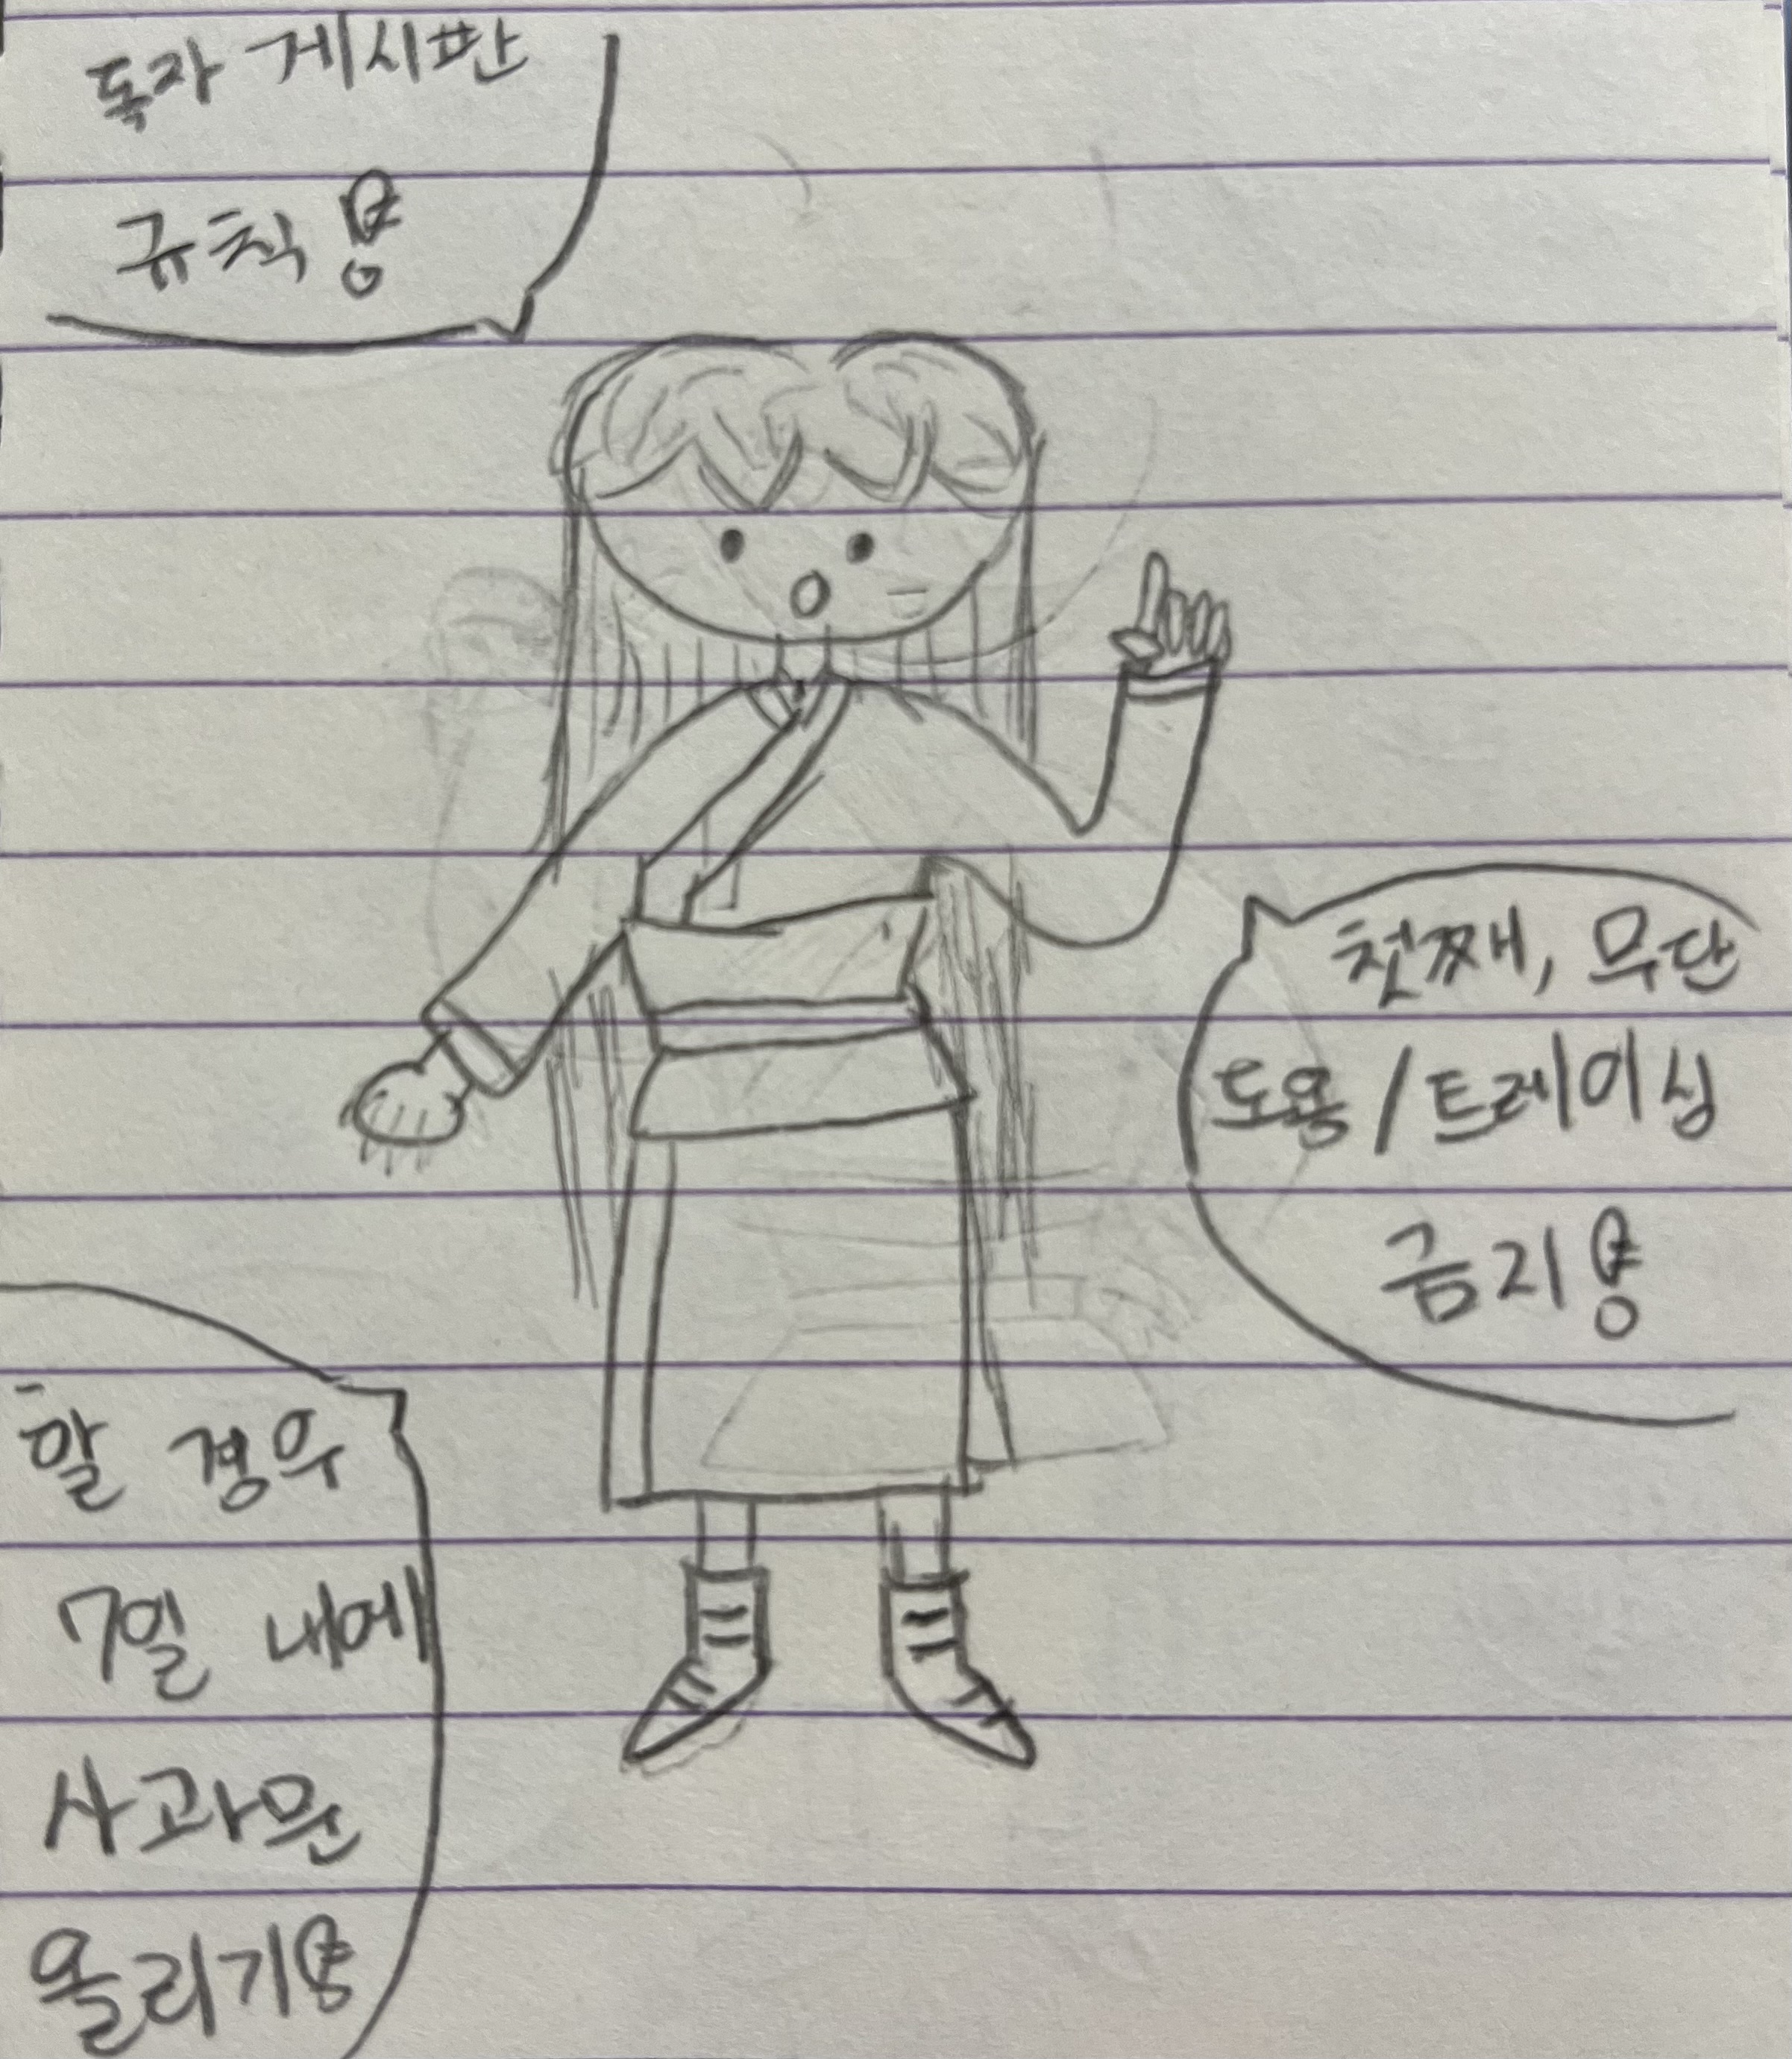 독자 게시판
규칙용
첫째, 무단
도용/트레이싱
금지용
할 경우
7일 내에
사과문
올리기용